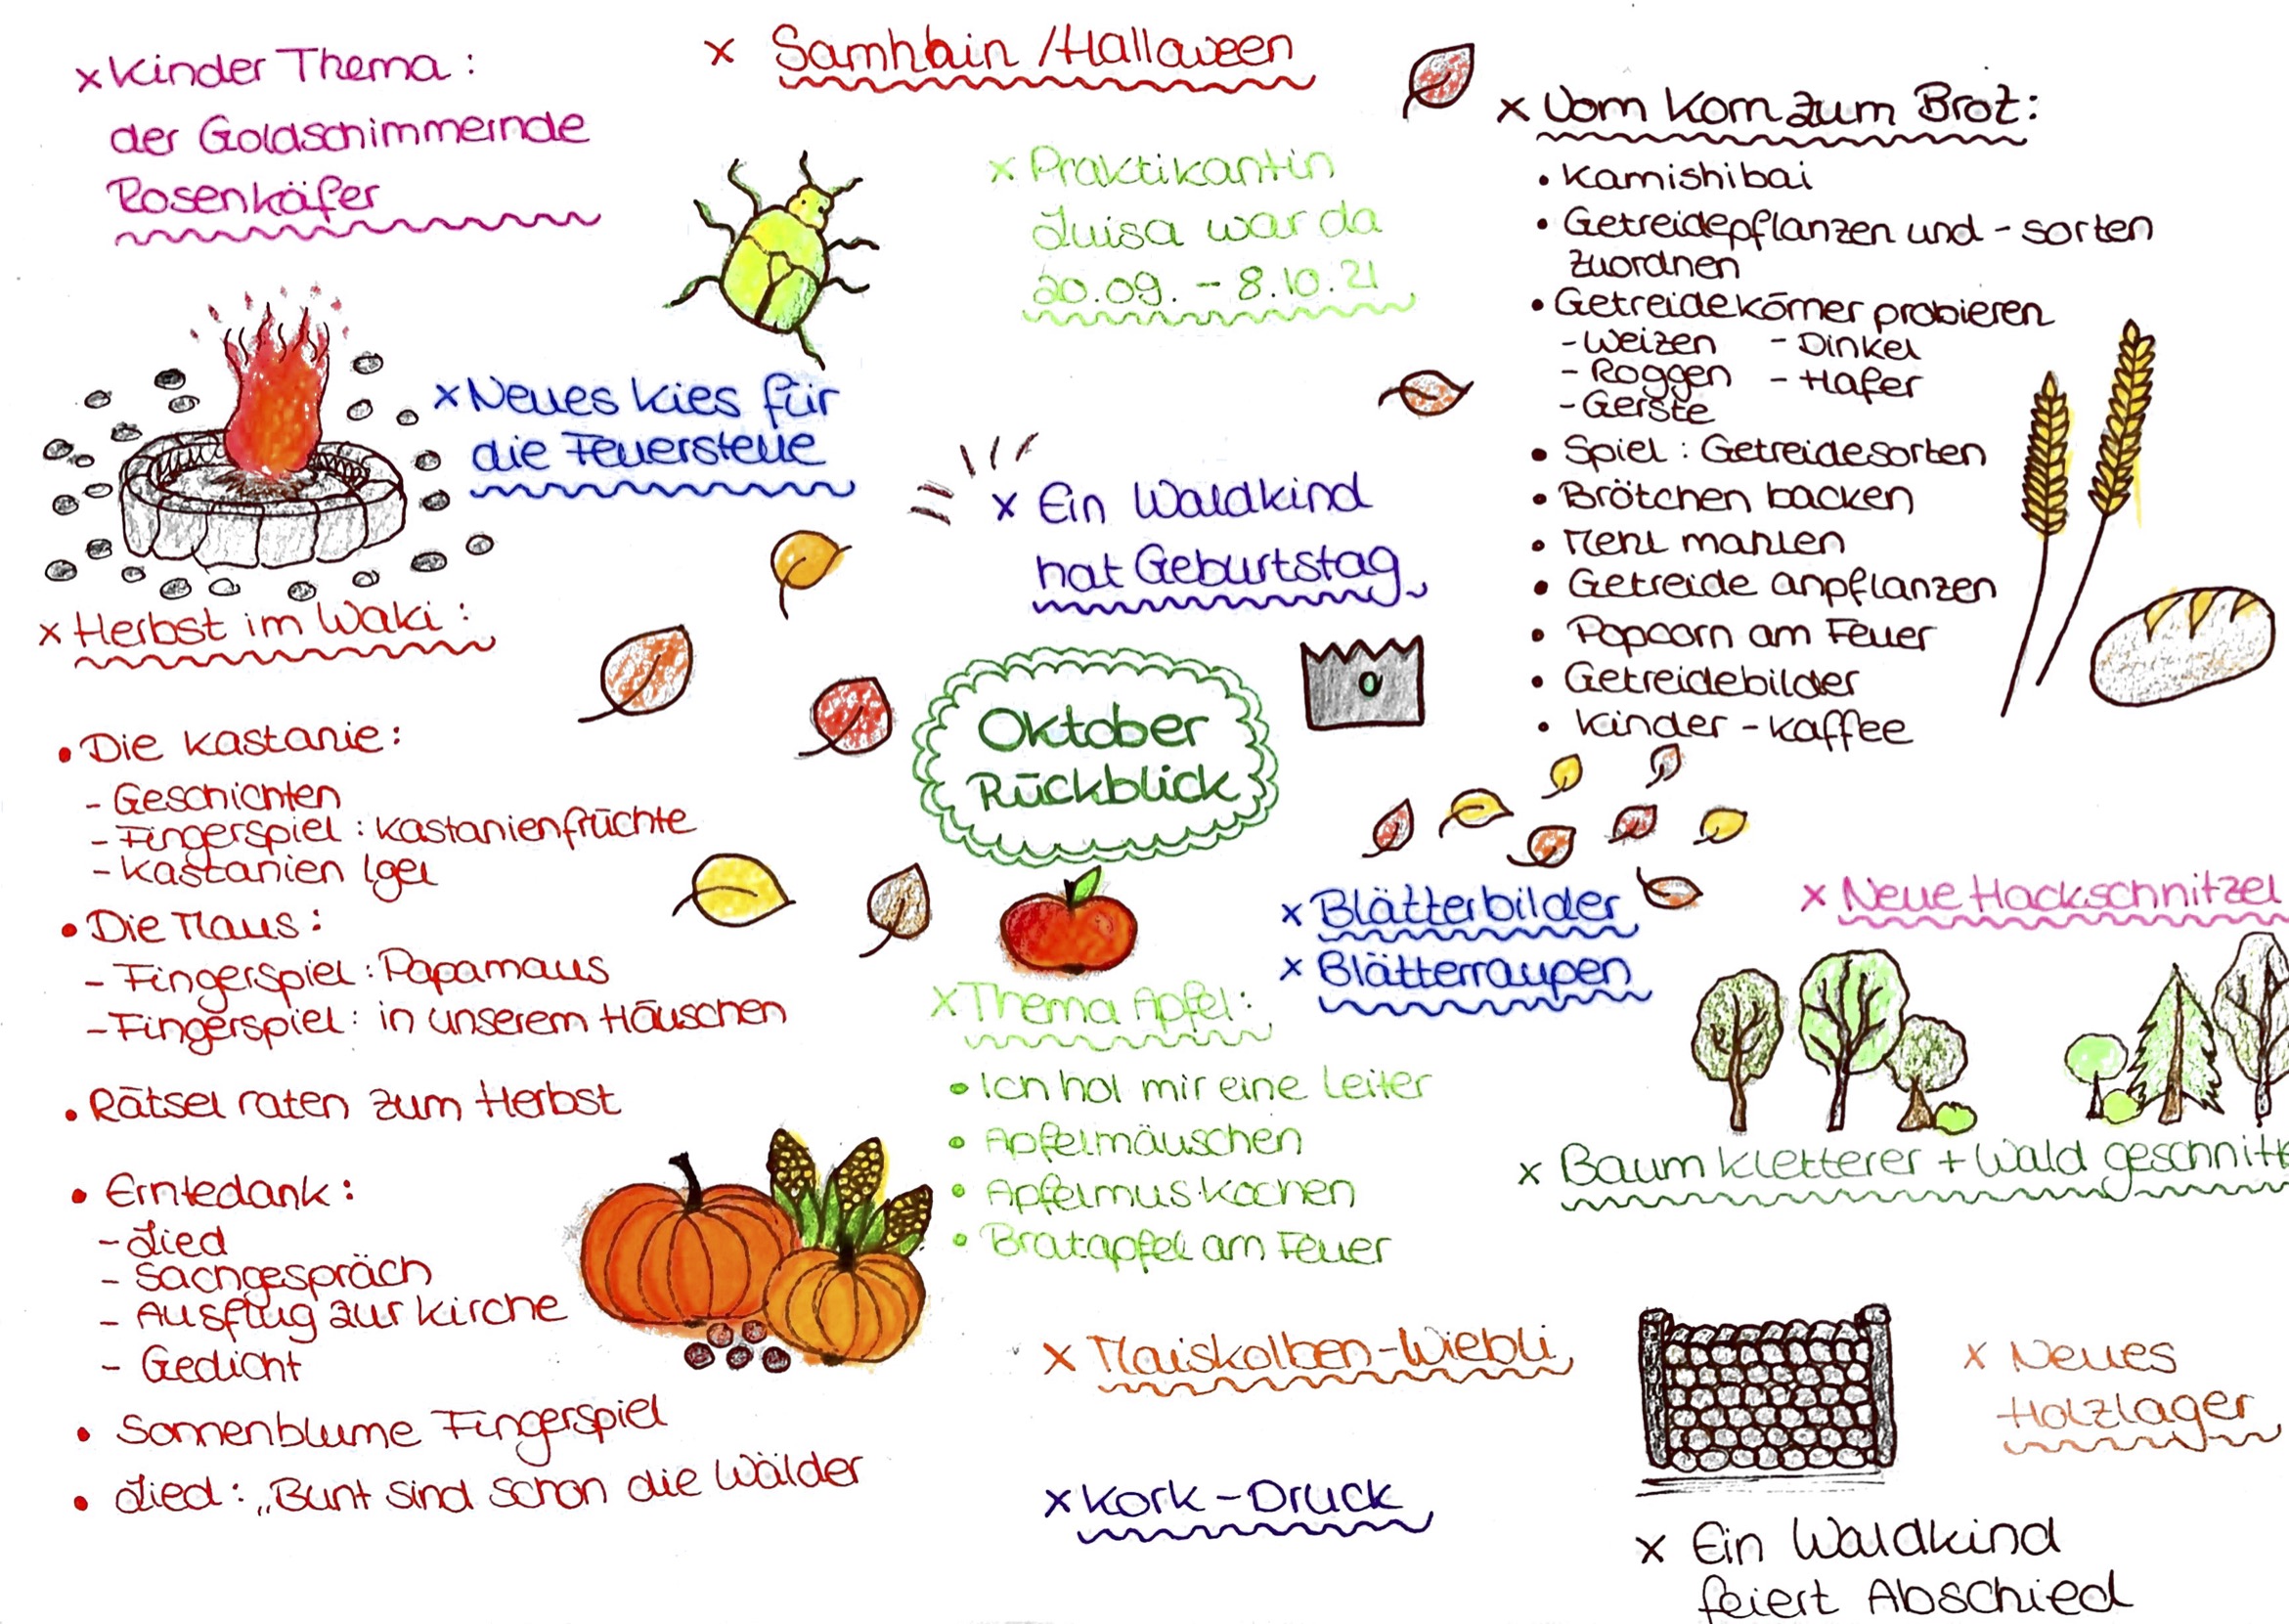 x Kinder Thema :
der Goldschimmernde
Rosenkäfer
x Samhain / Halloween
x Praktikantin
Luisa war da
20.09. - 8.10.21
x Vom Korn zum Brot:
• Kamishibai
• Getreidepflanzen und - sorten
zuordnen
• Getreidekörner probieren
- Weizen - Dinkel
- Roggen - Hafer
- Gerste
• Spiel : Getreidesorten
• Brötchen backen
• Mehl mahlen
• Getreide anpflanzen
• Popcorn am Feuer
• Getreidebilder
• Kinder - Kaffee
x Neues Kies für
die Feuerstelle
x Ein Waldkind
hat Geburtstag
Oktober
Rückblick
x Herbst im Waki :
• Die Kastanie :
- Geschichten
- Fingerspiel : Kastanienfrüchte
- Kastanien Igel
• Die Maus :
- Fingerspiel : Papamaus
- Fingerspiel : in unserem Häuschen
• Rätsel raten zum Herbst
• Erntedank :
- Lied
- Sachgespräch
- Ausflug zur Kirche
- Gedicht
• Sonnenblume Fingerspiel
• Lied : „Bunt sind schon die Wälder
x Thema Apfel :
• Ich hol mir eine Leiter
• Apfelmäuschen
• Apfelmus kochen
• Bratapfel am Feuer
x Blätterbilder
x Blätterraupen
x Neue Hackschnitzel
x Baum kletterer + Wald geschnitte
x Maiskolben-Wiebli
x Kork - Druck
x Neues
Holzlager
x Ein Waldkind
feiert Abschied